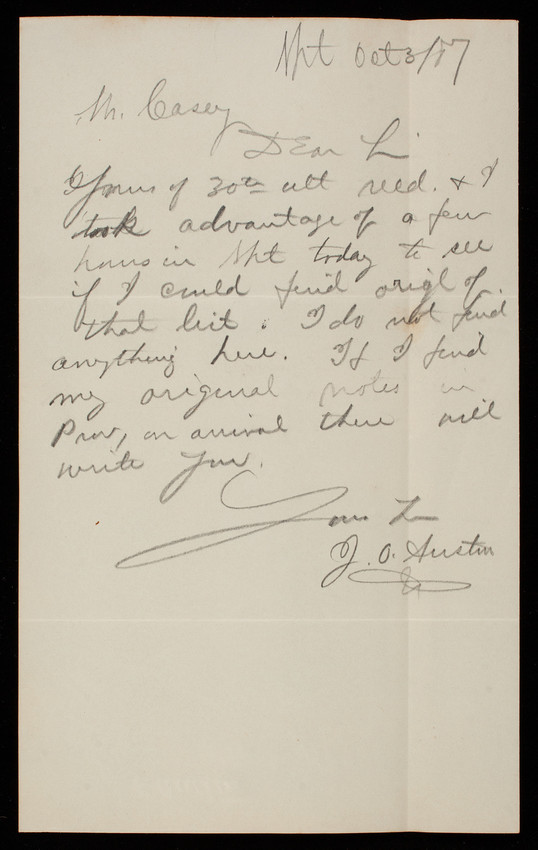 Npt Oct 3/87
Mr. Casey
Dear Sir
Yours of 30th ult recd. & I
took advantage of a few
hours in Npt today to see
if I could find origl of
that list. I do not find
anything here. If I find
my original notes in
Prov, on arrival there will
write you.
Yours Tr
J. O. Austin